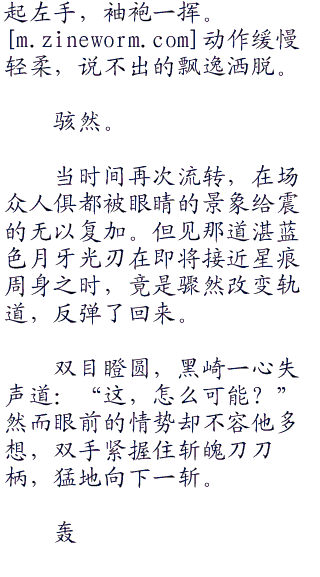 起左手，袖袍一挥。
[m.zineworm.com]动作缓慢
轻柔，说不出的飘逸洒脱。
骇然。
当时间再次流转，在场
众人俱都被眼睛的景象给震
的无以复加。但见那道湛蓝
色月牙光刃在即将接近星痕
周身之时，竟是骤然改变轨
道，反弹了回来。
双目瞪圆，黑崎一心失
声道：“这，怎么可能？”
然而眼前的情势却不容他多
想，双手紧握住斩魄刀刀
柄，猛地向下一斩。
轰